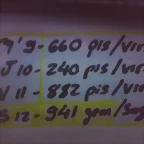 9 - 660 pis/vir
J 10 - 240 pis/vir
V 11 - 882 pis/vir
S 12 - 941 gem/sug